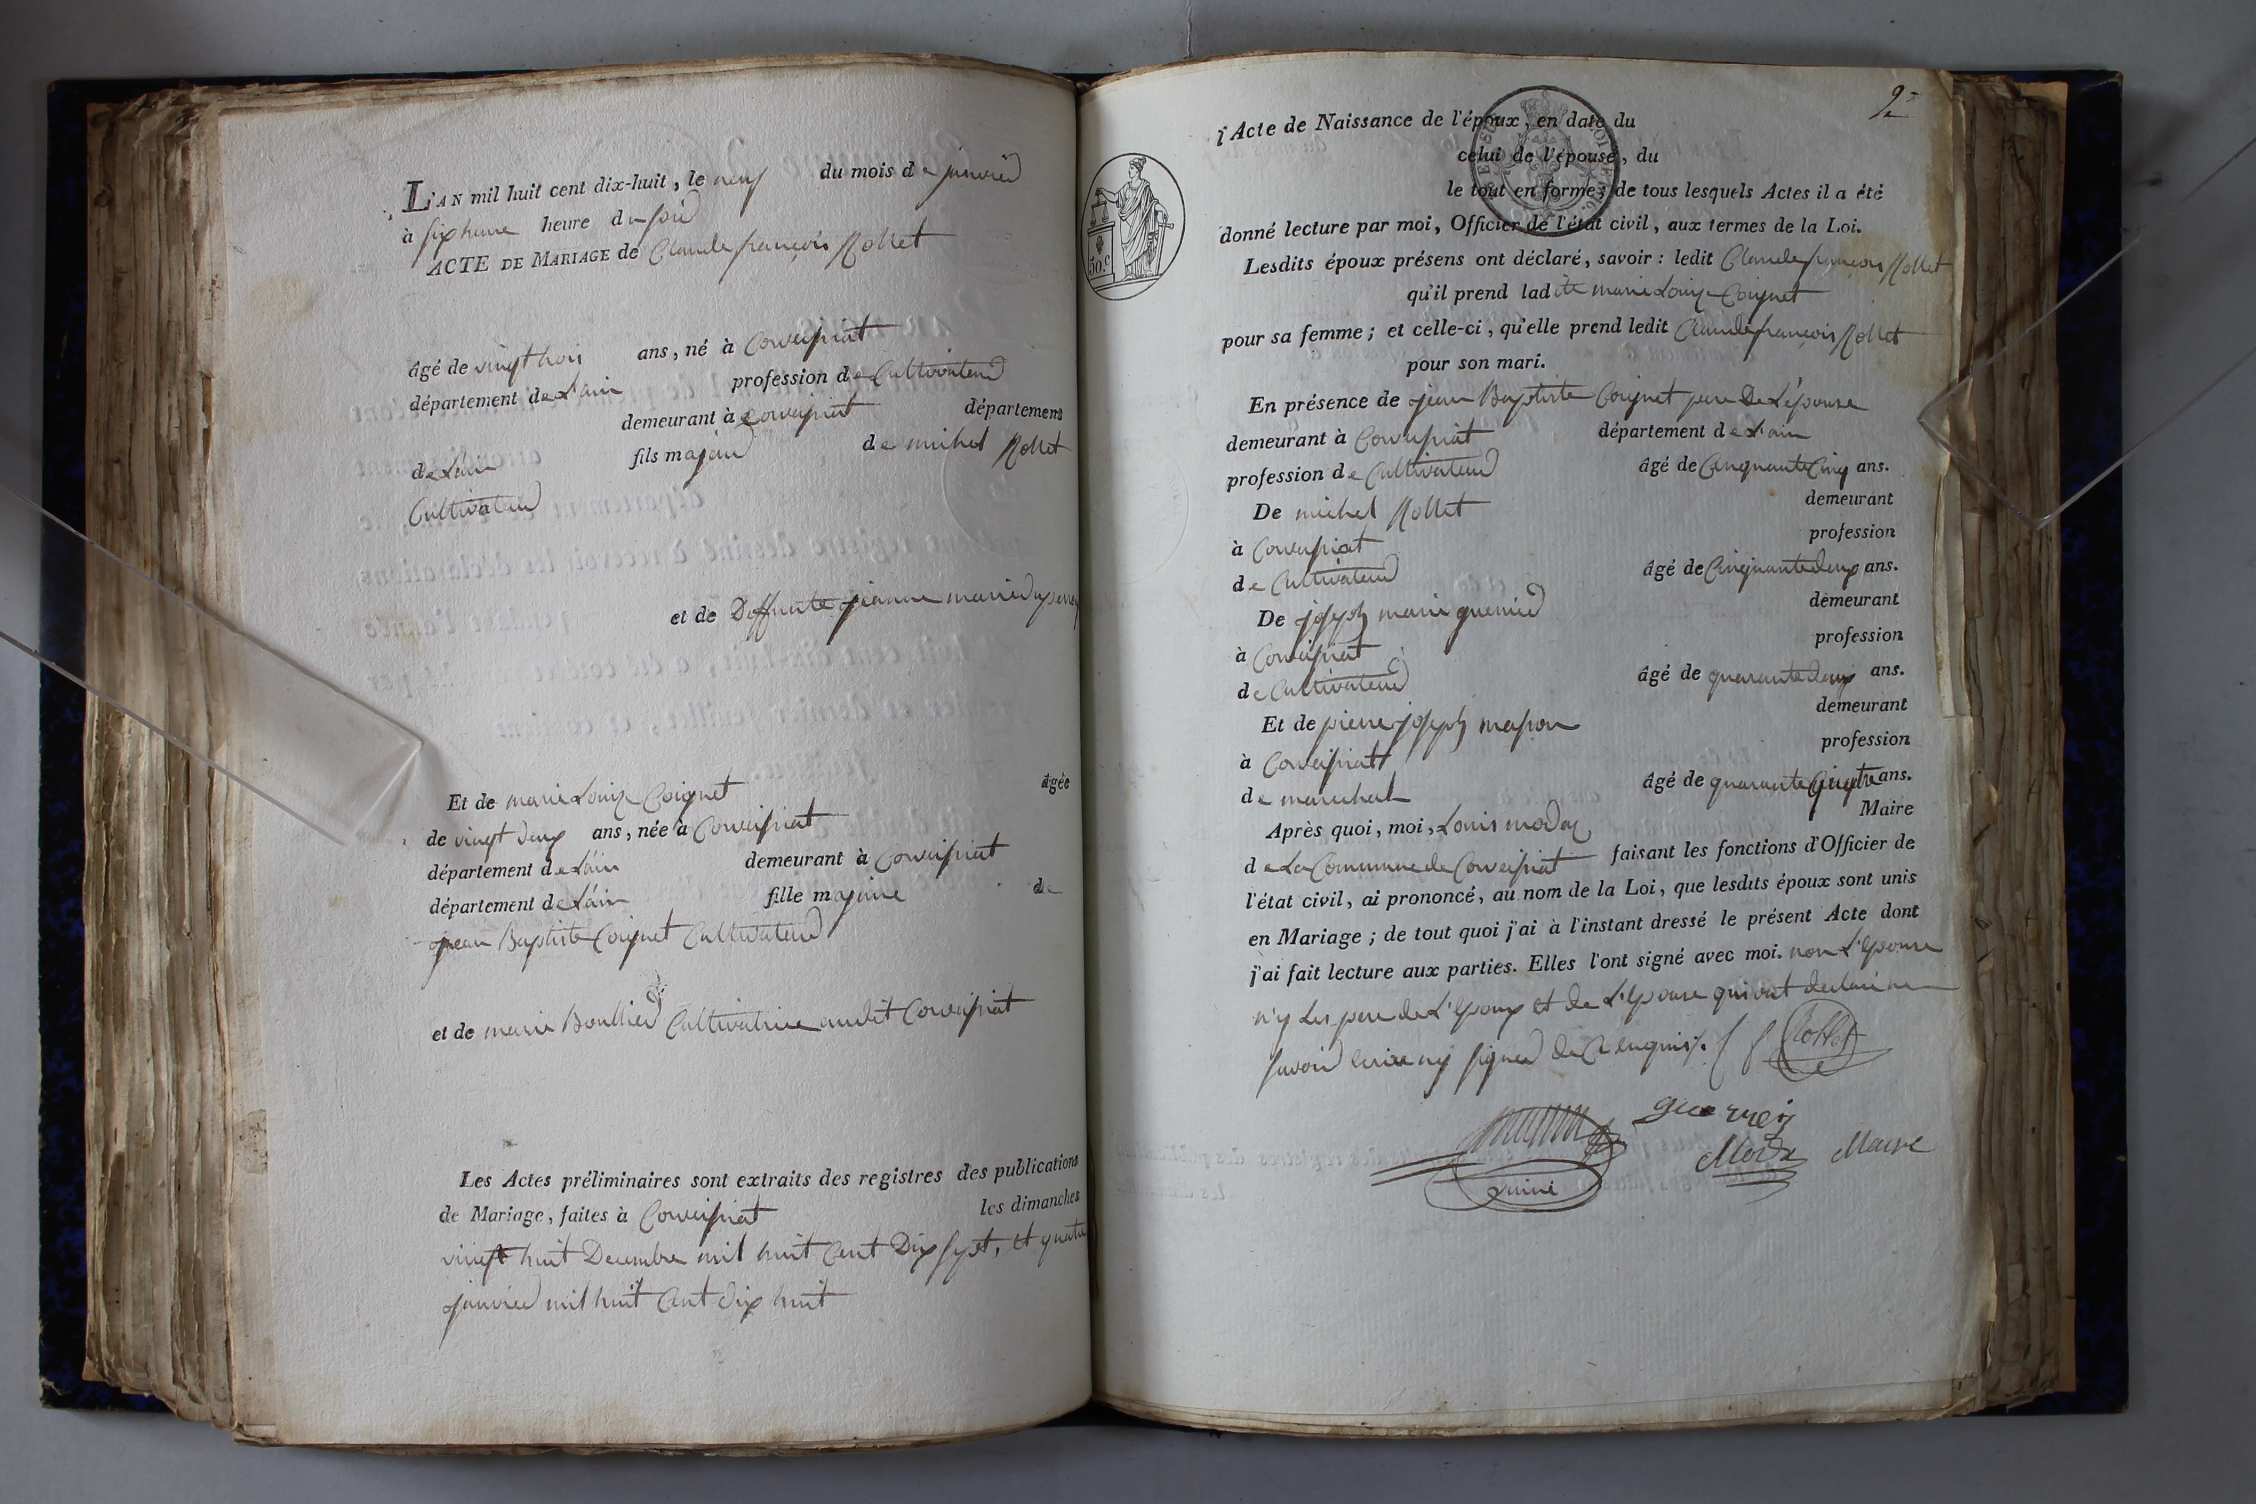 L'AN mil huit cent dix-huit, le neuf du mois de janvier
à six heure heure du soir
ACTE DE MARIAGE de Claude françois Rollet
âgé de vingt trois ans, né à Corveissiat
département de L'ain profession de Cultivateur
demeurant à Corveissiat département
de L'ain fils majeur de michel Rollet
Cultivateur
et de Deffunte jeanne marie
Et de marie Louise Coignet âgée
de vingt deux ans, née à Corveissiat
département de L'ain demeurant à Corveissiat
département de L'ain fille majeure de
jean Baptiste Coignet Cultivateur
et de marie Boullier Cultivatrice audit Corveissiat
Les Actes préliminaires sont extraits des registres des publications
de Mariage, faites à Corveissiat les dimanches
vingt huit Decembre mil huit Cent Dix sept, et quatre
janvier mil huit Cent dix huit
2
50 c
l'Acte de Naissance de l'époux, en date du
celui de l'épouse, du
le tout en forme; de tous lesquels Actes il a été
donné lecture par moi, Officier de l'état civil, aux termes de la Loi.
Lesdits époux présens ont déclaré, savoir : ledit Claude françois Rollet
qu'il prend ladite marie Louise Coignet
pour sa femme; et celle-ci, qu'elle prend ledit Claude françois Rollet
pour son mari.
En présence de jean Baptiste Coignet pere De L'épouse
demeurant à Corveissiat département de L'ain
profession de Cultivateur âgé de Cinquante Cinq ans.
De michel Rollet demeurant
à Corveissiat profession
de Cultivateur âgé de Cinquante deux ans.
De joseph marie demeurant
à Corveissiat profession
de Cultivateur âgé de quarante deux ans.
Et de pierre joseph masson demeurant
à Corveissiat profession
de marechal âgé de quarante ans.
Après quoi, moi, Louis Maire
de La Commune de Corveissiat faisant les fonctions d'Officier de
l'état civil, ai prononcé, au nom de la Loi, que lesdits époux sont unis
en Mariage; de tout quoi j'ai à l'instant dressé le présent Acte dont
j'ai fait lecture aux parties. Elles l'ont signé avec moi. non L'epouse
n'y Les pere de L'epoux et de L'epouse qui ont declaré ne
savoir ecrire ny signer de ce enquis.
Rollet
Maire